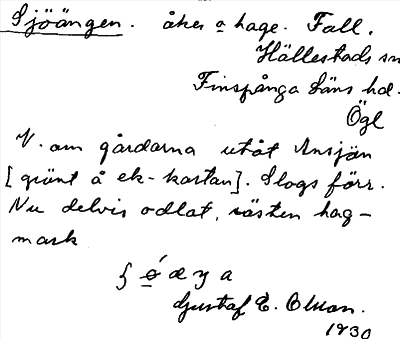 Sjöängen. åker o hage. Fall.
Hällestads sn
Finspånga läns hd.
Ögl
V. om gårdarna utåt Ensjön
[grönt å ek-kartan]. Slogs förr.
Nu delvis odlat, resten hag-
mark
Gustaf E. Olsson.
1930